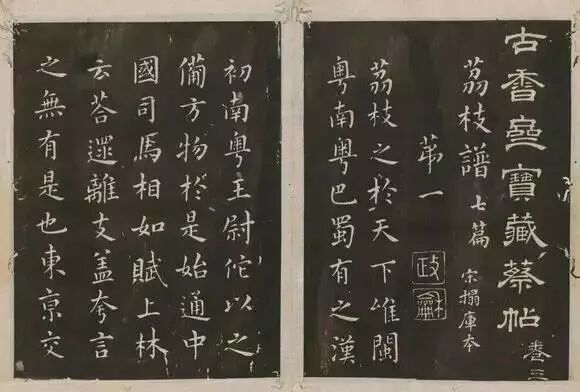 古香齋寶藏蔡帖 卷三
荔枝譜 七篇 宋搨庫本
苐一
荔枝之於天下唯閩
粤南粤巴蜀有之漢
初南粤王尉佗以之
備方物於是始通中
國司馬相如賦上林
云荅遝離支盖夸言
之無有是也東亰交